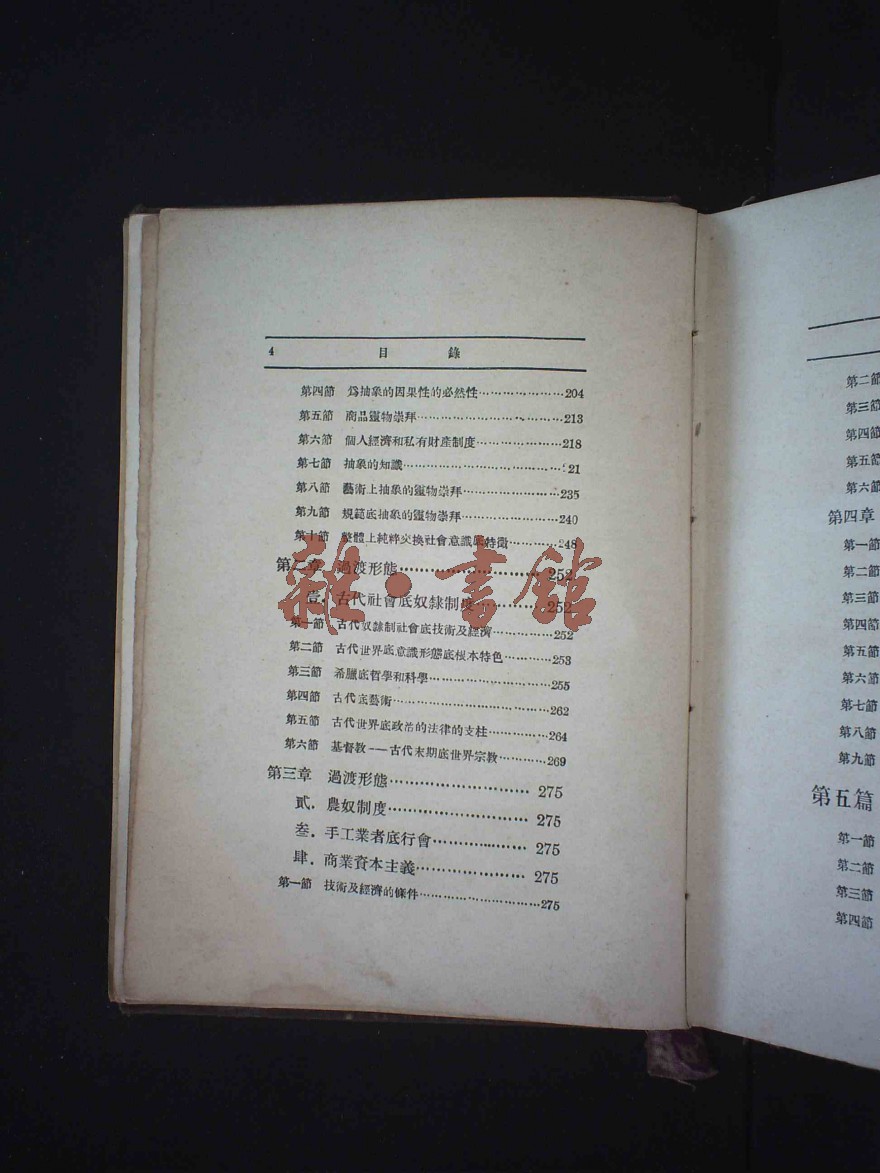 4 目 錄
第四節 爲抽象的因果性的必然性…………………204
第五節 商品靈物崇拜…………………………213
第六節 個人經濟和私有財產制度…………………218
第七節 抽象的知識…………………………21
第八節 藝術上抽象的靈物崇拜…………………235
第九節 規範底抽象的靈物崇拜…………………240
第十節 整體上純粹交換社會意識底特徵…………248
第二章 過渡形態…………………………252
壹．古代社會底奴隸制度…………252
第一節 古代奴隸制社會底技術及經濟…………252
第二節 古代世界底意識形態底根本特色…………253
第三節 希臘底哲學和科學…………………255
第四節 古代底藝術…………………………262
第五節 古代世界底政治的法律的支柱…………264
第六節 基督教——古代末期底世界宗教…………269
第三章 過渡形態…………………………275
貳．農奴制度…………………………275
叁．手工業者底行會…………………275
肆．商業資本主義…………………275
第一節 技術及經濟的條件…………………275
雜·書館
第二節
第三節
第四節
第五節
第六節
第四章
第一節
第二節
第三節
第四節
第五節
第六節
第七節
第八節
第九節
第五篇
第一節
第二節
第三節
第四節